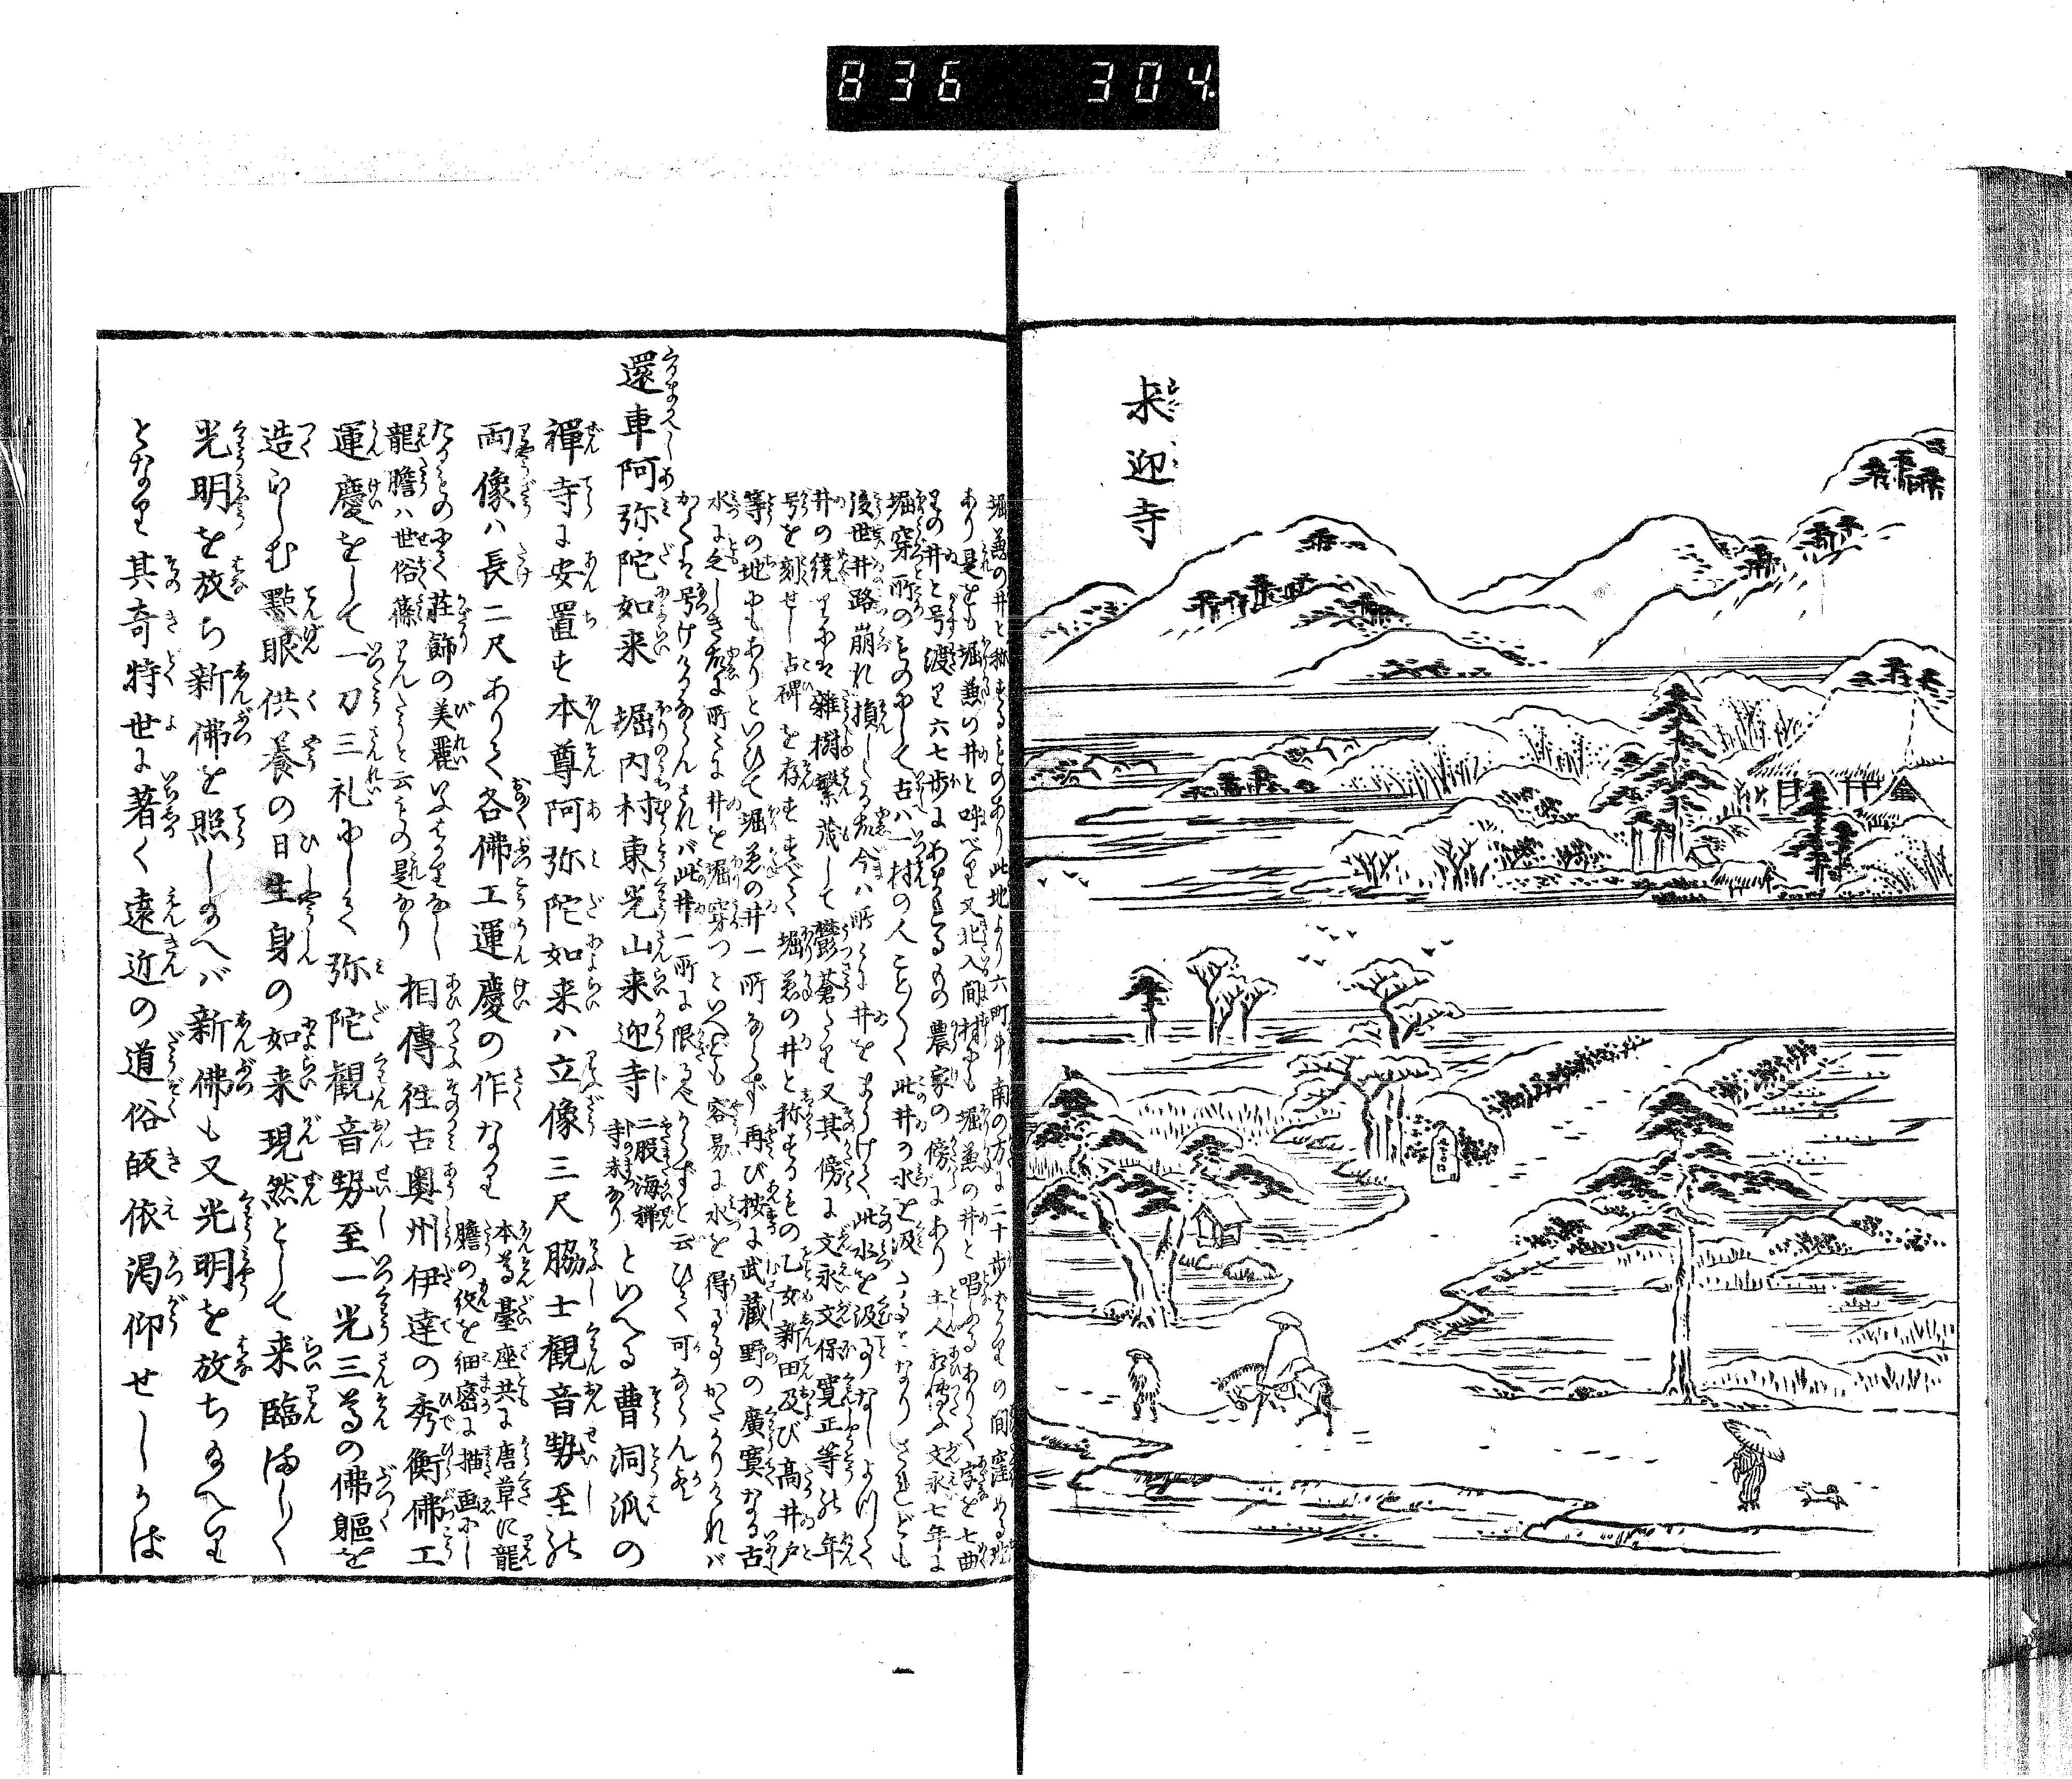 836 304
来迎寺
堀兼の井と称するものあり此地より六町半南の方に二十歩ばかりの間窪める地
あり是をも堀兼の井と呼べり又北入間村にも堀兼の井と唱ふるありて字を七曲
りの井と号渡り六七歩にあまれるもの農家の傍にあり土人相傳ふ文永七年に
堀穿所のものにして古八村の人ことごとく此井の水を汲
後世井路崩れ損したる故今ハ所々に井をまうけて此水を汲事なしよつて
井の繞りにハ雑樹繁茂して鬱蒼たり又其傍に文永文保寛正等の年
号を刻せし古碑を存すすべて堀兼の井と称するもの乙女新田及び高井戸
等の地にもありといひて堀兼の井一所ならず再び按に武蔵野の廣寞なる古
水に乏しき故に所々に井を堀穿つといへども容易に水を得る事かたかりけれバ
かくハ号けけるならんされバ此井一所に限るべからずと云ひて可ならん歟
還車阿弥陀如来 堀内村東光山来迎寺 二股海禅寺末なり といへる曹洞派の
禅寺に安置す本尊阿弥陀如来ハ立像三尺脇士観音勢至の
両像ハ長二尺ありて各佛工運慶の作なり 本尊臺座共に唐草に龍
膽の紋を細密に描画にし
たるものにて荘飾の美麗いふばかりなし
龍膽ハ世俗篠りんたうと云もの是なり 相傳往古奥州伊達の秀衡佛工
運慶をして一刀三礼にして弥陀観音勢至一光三尊の佛躯を
造らしむ點眼供養の日生身の如来現然として来臨ましく
光明を放ち新佛を照し給へバ新佛も又光明を放ち給へり
となり其奇特世に著く遠近の道俗皈依渇仰せしかば